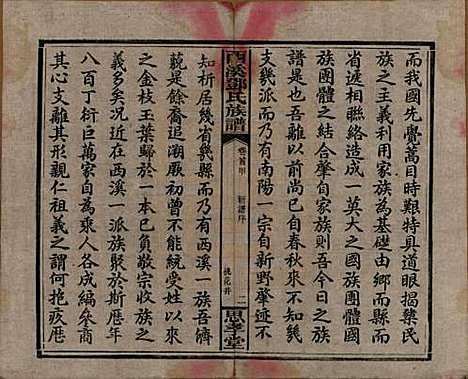 而我國先覺蒿目時艱特具道眼揭櫫民
族主義利用家族為基礎由鄉而縣而
省遞相聯絡造成一莫大之國族國
族團體之結合肇自家族則吾今日之族
譜是也吾離以前尚已自春秋來以
支幾派而乃有南陽一宗自新野肇迹不
西溪鄧氏族譜
卷首甲
新譜序
二
桃花井
思孝堂
知析居幾省幾縣而乃有西溪一族吾儕
藐是餘裔追溯厥初曾不能統受姓以來
之金枝玉葉歸於一本已負敬宗收族之
義多矣况近在西溪一派族聚於斯歷年
八百丁衍巨萬家自為乘人各成編參商
其心支離其形觀仁祖義之謂何抱疚歷